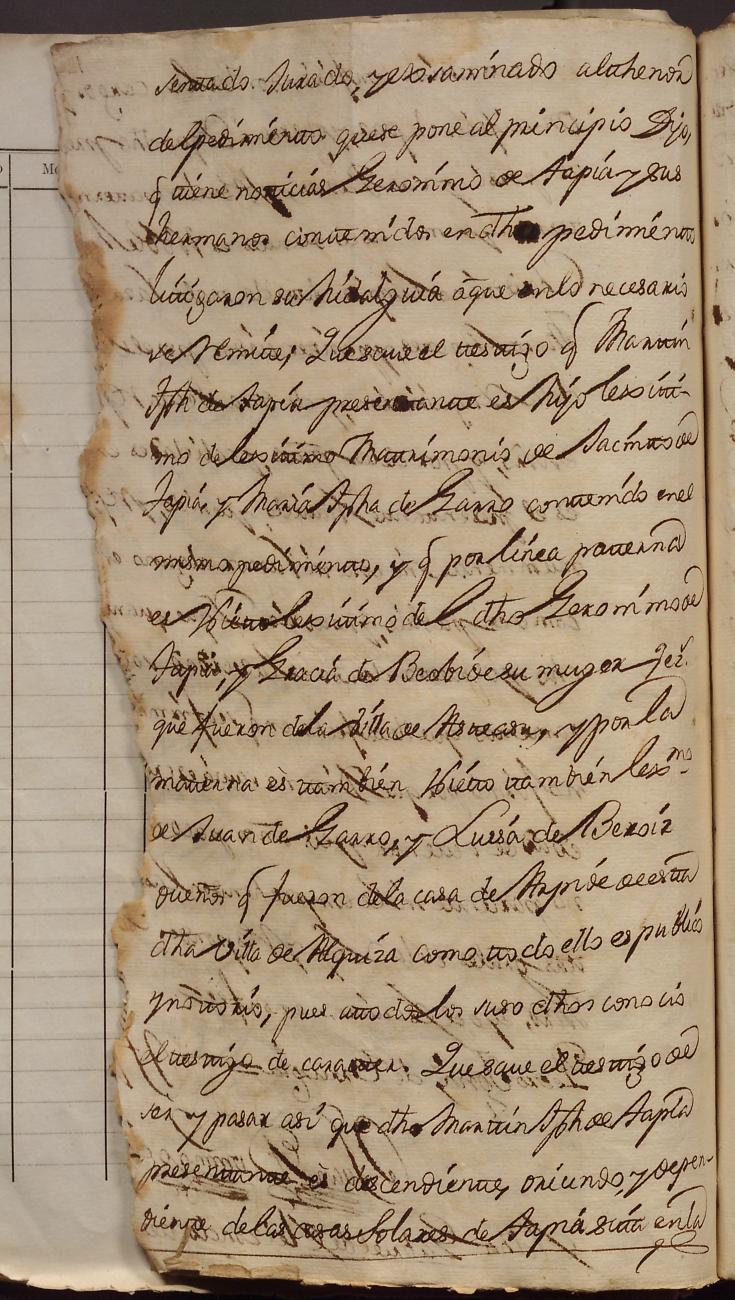 sentado Jurado, y exsaminado althenor
del pedimento quese pone al principio Dijo,
q tiene noticias Geronimo de Tapia y sus
hermanos contenidos en dho pedimento
litigaron su hidalguia aque en lo necesario
se remite, Que save el testigo q Martin
Jph de Tapia presentante es hijo lexiti-
mo de lexitimo Matrimonio de Jacinto de
Tapia, y Maria Jpha de Garro contenido en el
mismo pedimento, y q por linea paterna
es Vieto lexitimo del dho Geronimo de
Tapia, y Gracia de Beobide su muger
que fueron dela villa de Asteasu, y por la
materna es tambien Vieto tambien lexmo
de Juan de Garro, y Luisa de Beroiz
dueños q fueron dela casa de Arpide de esta
dha villa de Alquiza como todo ello es publico
y notorio, pues atodos los suso dhos conocio
el testigo de caracter. Que save el testigo de
ser y pasar asi que dho Martin Jph de Tapia
presentante es descendiente, oriundo, y depen-
diente de las casas Solares de Tapia sita en la